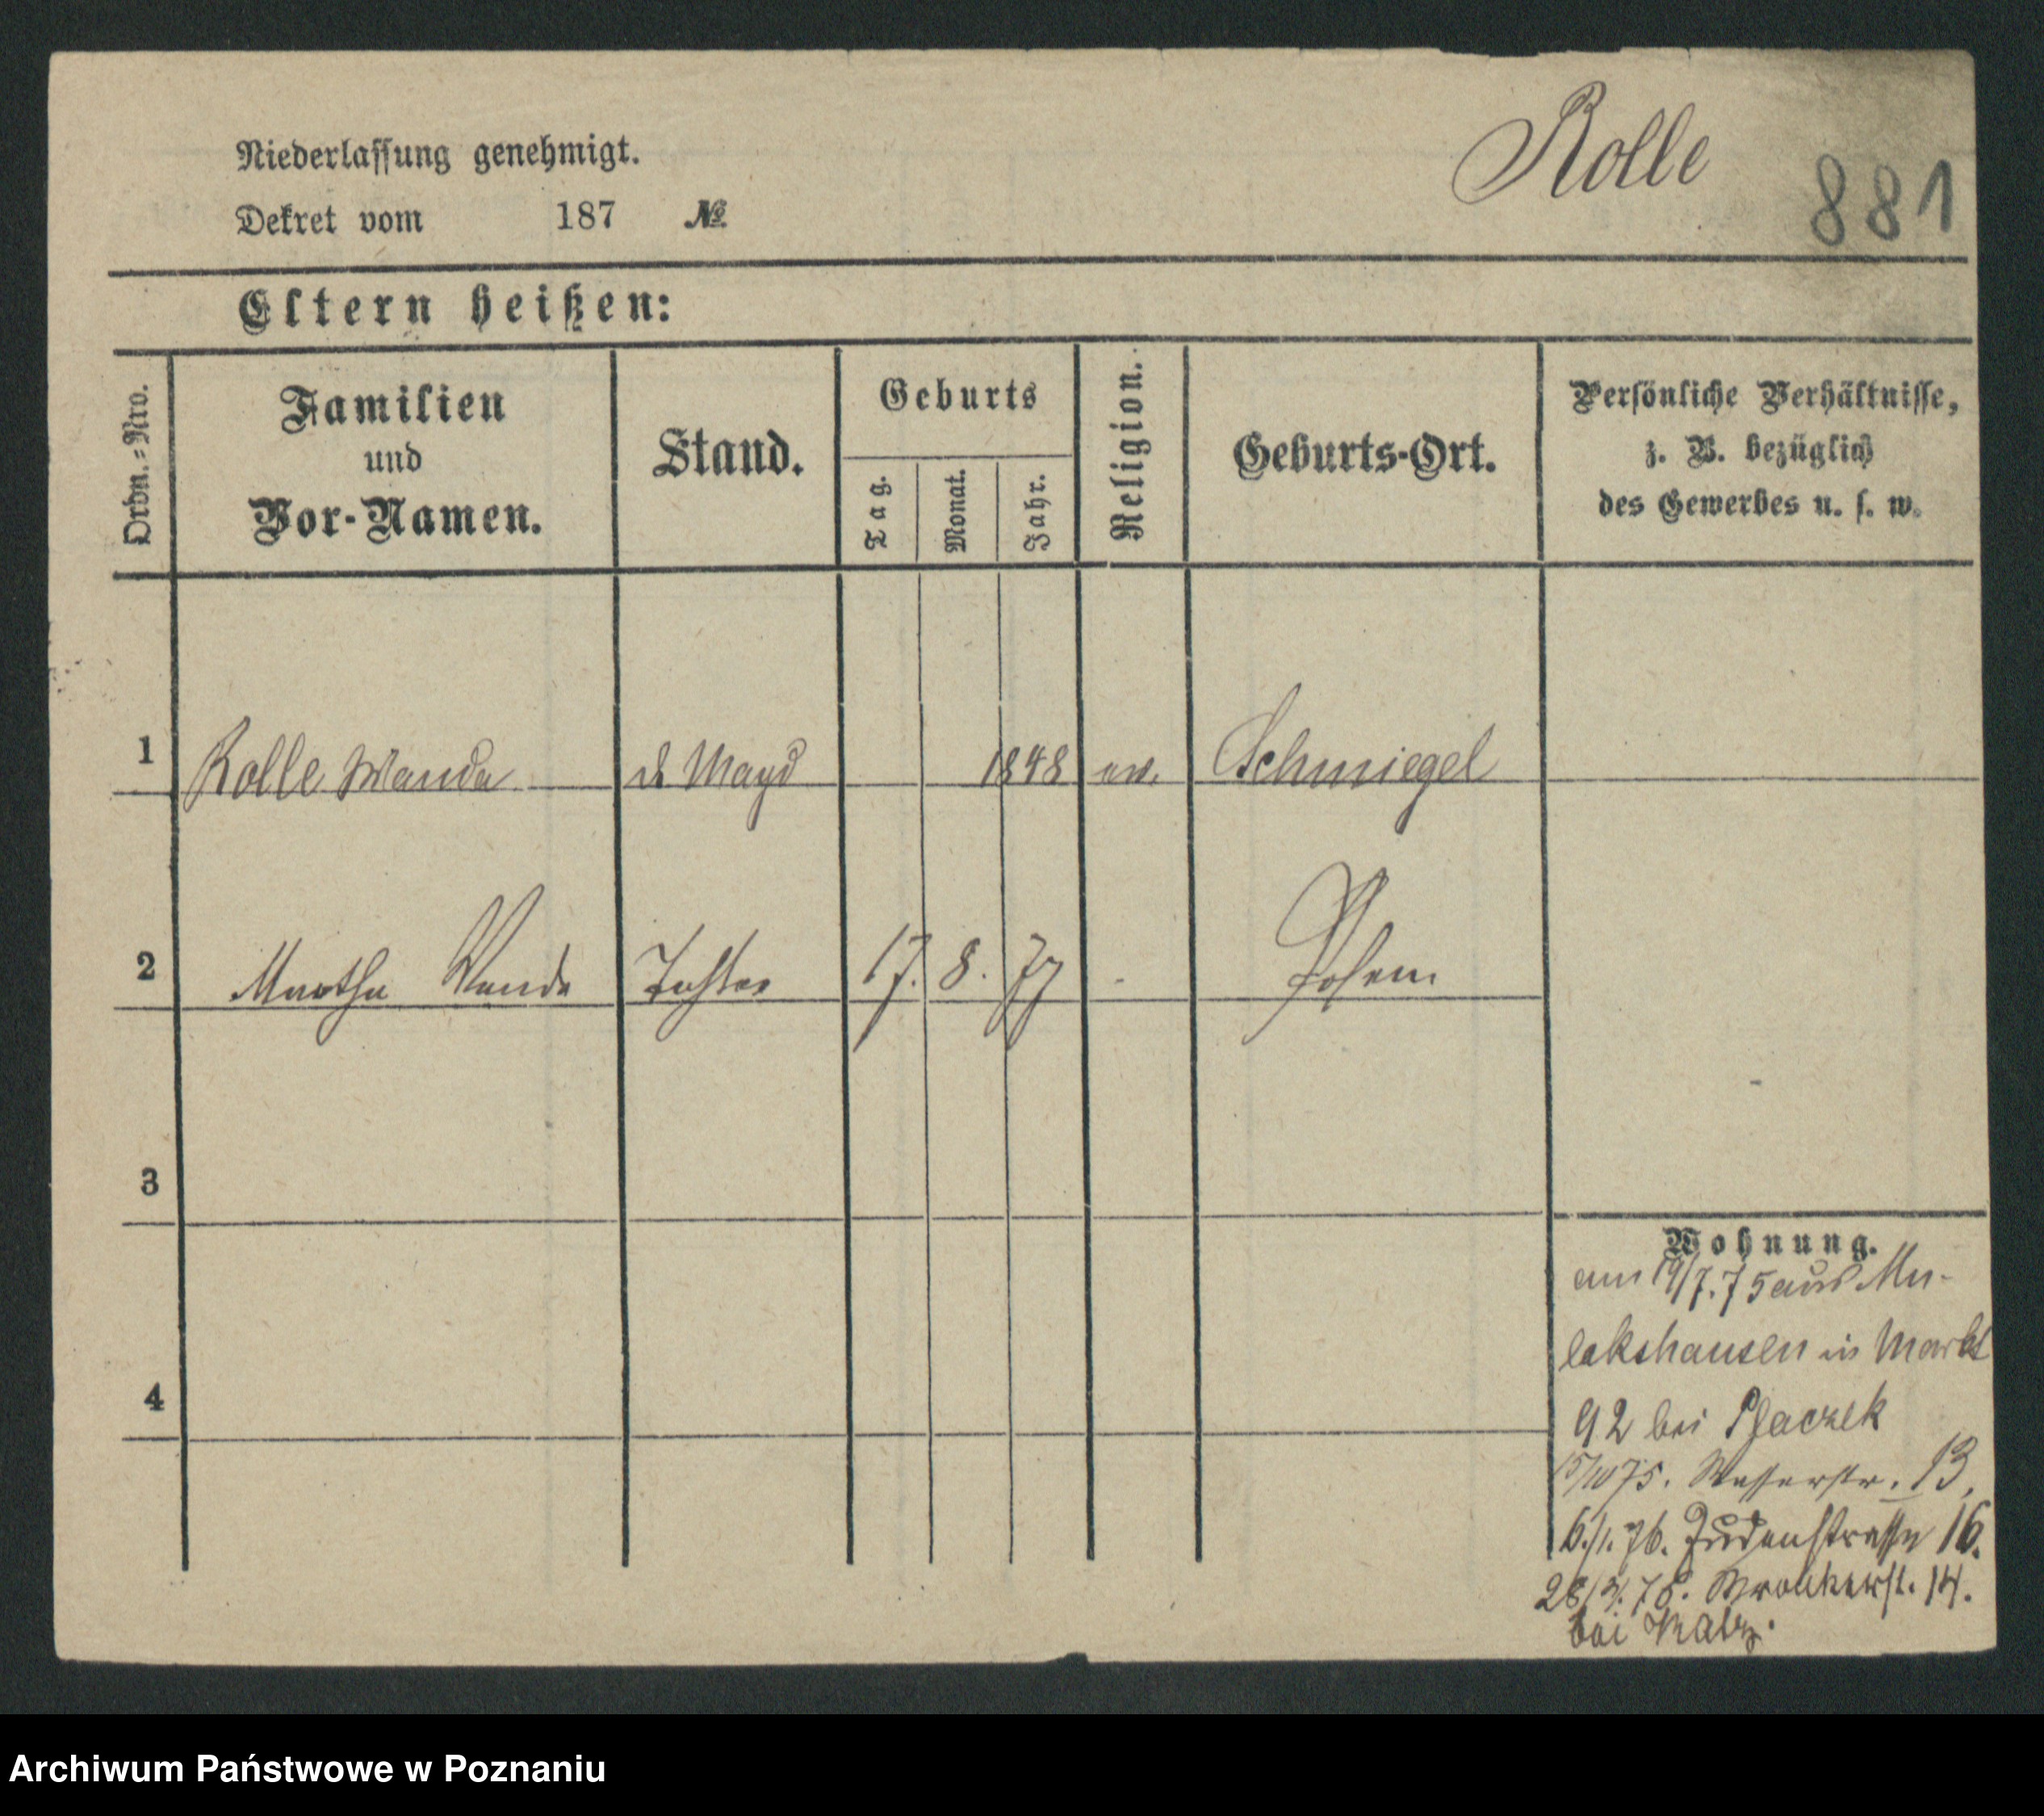 Rolle
881
Niederlassung genehmigt.
Dekret vom 187 №
Eltern heißen:
Ordn.-Nro.
Familien
und
Vor-Namen.
Stand.
Geburts
Tag.
Monat.
Jahr.
Religion.
Geburts-Ort.
Persönliche Verhältnisse,
z. B. bezüglich
des Gewerbes u. s. w.
1 Rolle Wanda d. Magd 1848 ev. Schmiegel
2 Martha Wanda Tochter 17. 8. 77 - Posen
3
4
Wohnung.
am 19/7.75 aus Mu-
lakshausen in Markt
92 bei
15/10 75. Wasserstr. 13,
6./1. 76. Judenstrasse 16.
Wronkerst. 14.
bei
Archiwum Państwowe w Poznaniu